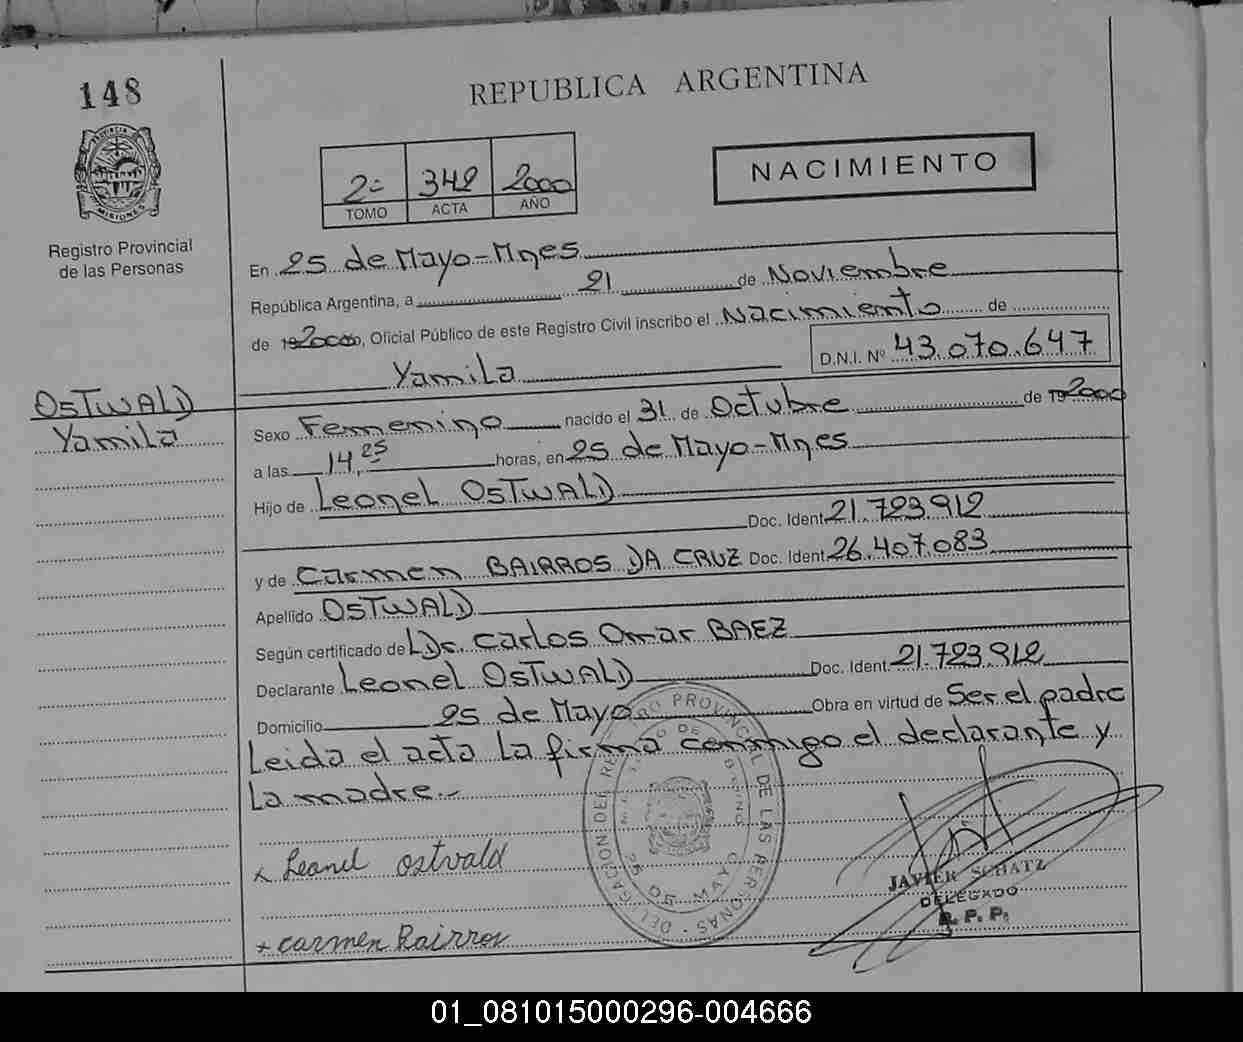 148
REPUBLICA ARGENTINA
PROVINCIA DE
MISIONES
Registro Provincial
de las Personas
2º 342 2000
TOMO ACTA AÑO
NACIMIENTO
En 25 de Mayo-Mnes
República Argentina, a 21 de Noviembre
de 192000, Oficial Público de este Registro Civil inscribo el Nacimiento de
Yamila D.N.I. Nº 43.070.647
OSTWALD
Yamila
Sexo Femenino nacido el 31 de Octubre de 192000
a las 14,25 horas, en 25 de Mayo-Mnes
Hijo de Leonel OSTWALD
Doc. Ident 21.723.912
y de Carmen BAIRROS DA CRUZ Doc. Ident 26.407.083
Apellido OSTWALD
Según certificado de LDr. Carlos Omar BAEZ
Declarante Leonel OSTWALD Doc. Ident. 21.723.912
Domicilio 25 de Mayo Obra en virtud de Ser el padre
Leida el acta La firma conmigo el declarante y
La madre.-
Leonel Ostvald
carmen Bairros
DELEGACION DEL REGISTRO PROVINCIAL DE LAS PERSONAS
25 DE MAYO
JAVIER SCHATZ
DELEGADO
R. P. P.
01_081015000296-004666